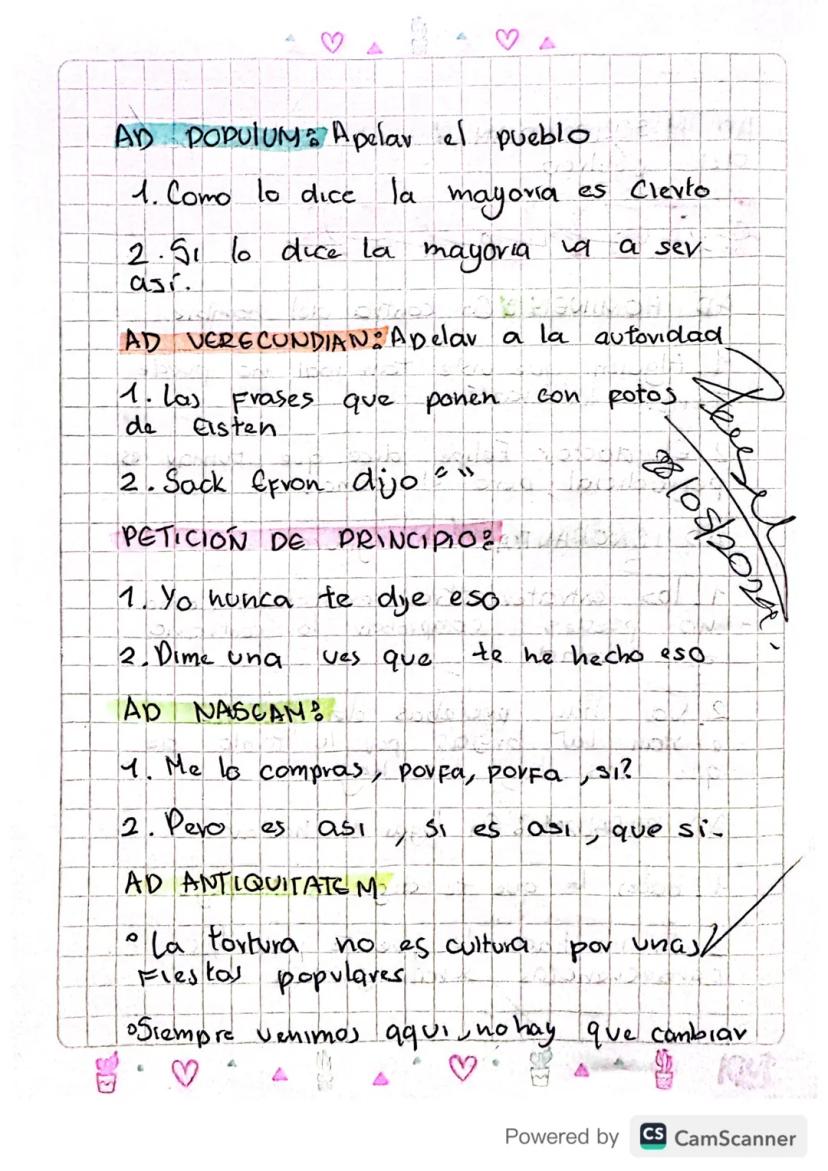 AD POPULUM: Apelar el pueblo
1. Como lo dice la mayoria es Cierto
2. Si lo dice la mayoria va a ser
así.
AD VERECUNDIAN: Apelar a la autoridad
1. Las Frases que ponen con fotos
de Eisten
2. Sack Efron dijo " "
PETICIÓN DE PRINCIPIO:
1. Yo nunca te dije eso
2. Dime una ves que te he hecho eso
AD NASCAM:
1. Me lo compras, porfa, porfa, si?
2. Pero es asi, si es asi, que si.
AD ANTIQUITATEM
° La tortura no es cultura por unas
Fiestas populares
° Siempre venimos aqui, no hay que cambiar
Powered by CS CamScanner